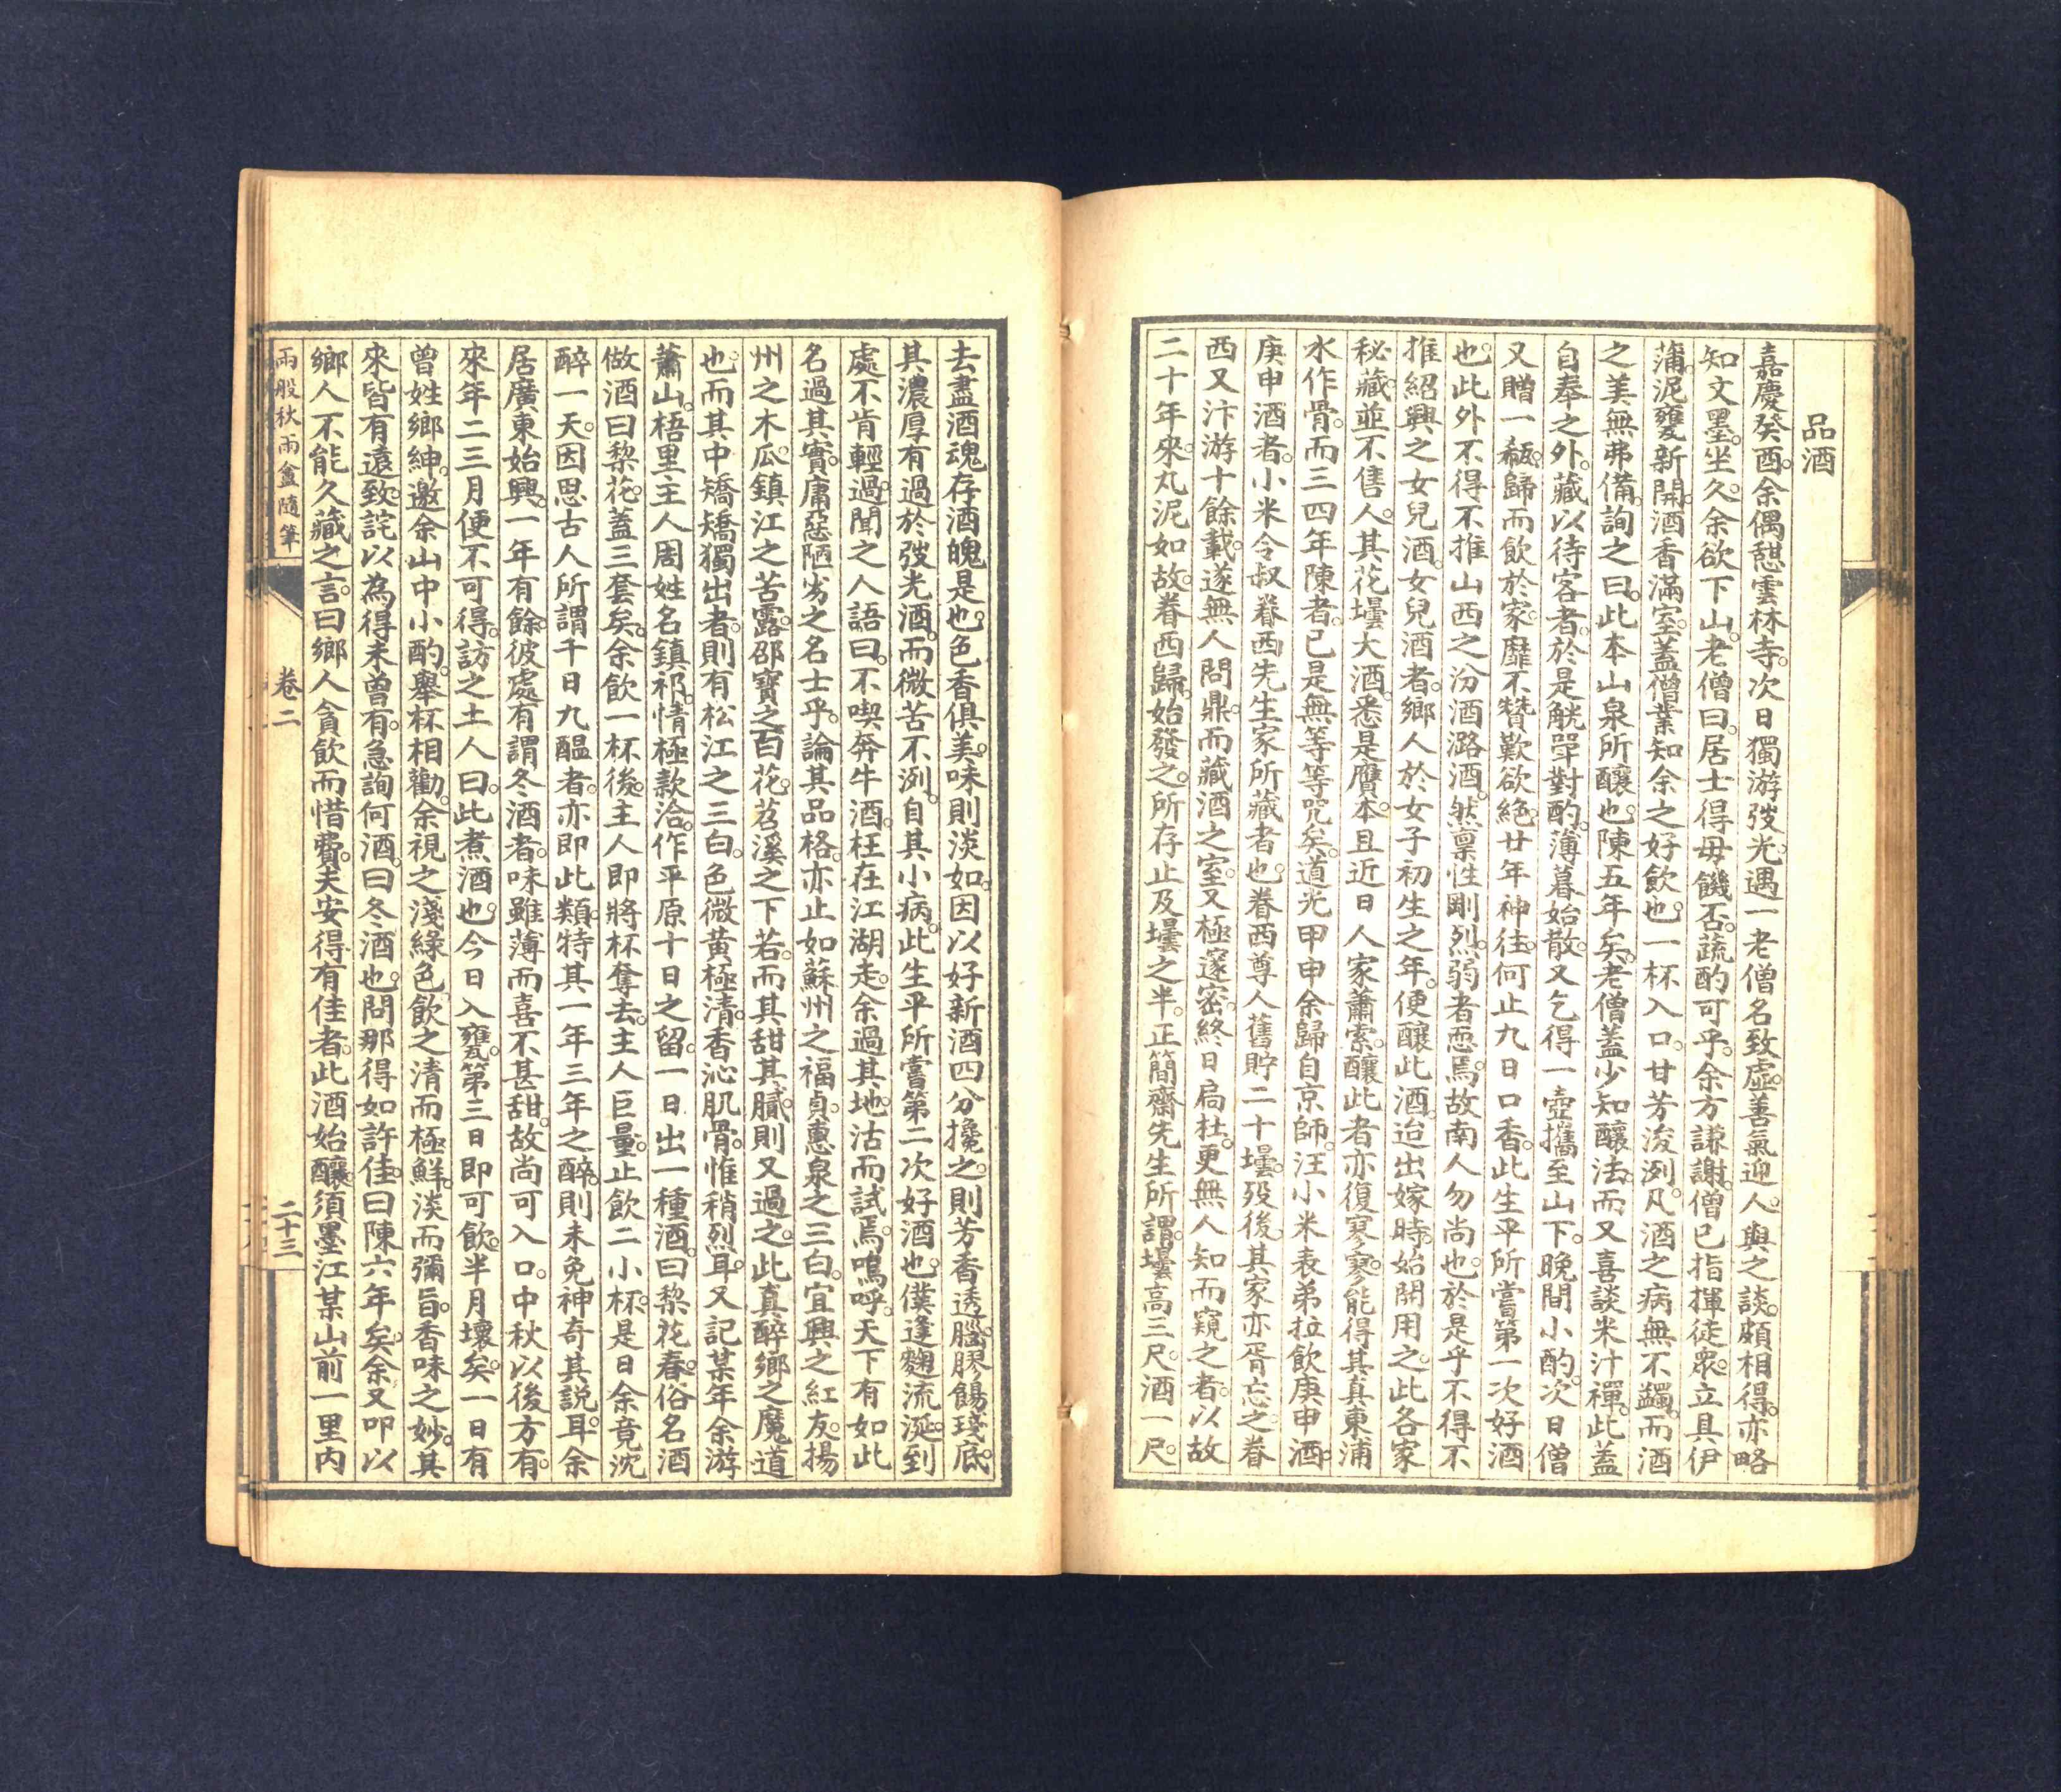 品酒
嘉慶癸酉。余偶憩雲林寺。次日獨游弢光。遇一老僧名致虛。善氣迎人。與之談。頗相得。亦略
知文墨。坐久。余欲下山。老僧曰。居士得毋饑否。蔬酌可乎。余方謙謝。僧已指揮徒衆。立具伊
蒲。泥甕新開。酒香滿室。蓋僧業知余之好飲也。一杯入口。甘芳浚洌。凡酒之病無不蠲。而酒
之美無弗備。詢之曰。此本山泉所釀也。陳五年矣。老僧蓋少知釀法。而又喜談米汁禪。此蓋
自奉之外。藏以待客者。於是觥斝對酌。薄暮始散。又乞得一壺。攜至山下。晚間小酌。次日僧
又贈一瓻。歸而飲於家。靡不贊歎欲絕。廿年神往。何止九日口香。此生平所嘗第一次好酒
也。此外不得不推山西之汾酒潞酒。然稟性剛烈。弱者恧焉。故南人勿尚也。於是乎不得不
推紹興之女兒酒。女兒酒者。鄉人於女子初生之年。便釀此酒。迨出嫁時。始開用之。此各家
秘藏。並不售人。其花壜大酒。悉是贋本。且近日人家蕭索。釀此者亦復寥寥。能得其真東浦
水作骨。而三四年陳者。已是無等等咒矣。道光甲申余歸自京師。汪小米表弟拉飲庚申酒。
庚申酒者。小米令叔眷西先生家所藏者也。眷西尊人舊貯二十壜。歿後。其家亦胥忘之。眷
西又汴游十餘載。遂無人問鼎。而藏酒之室。又極邃密。終日扃杜。更無人知而窺之者。以故
二十年來。丸泥如故。眷西歸。始發之。所存止及壜之半。正簡齋先生所謂。壜高三尺。酒一尺。
去盡酒魂存酒魄是也。色香俱美。味則淡如。因以好新酒四分攙之。則芳香透腦。膠餳琖底。
其濃厚有過於弢光酒。而微苦不洌。自其小病。此生平所嘗第二次好酒也。僕逢麴流涎。到
處不肯輕過。聞之人語曰。不喫奔牛酒。枉在江湖走。余過其地。沽而試焉。嗚呼。天下有如此
名過其實。庸惡陋劣之名士乎。論其品格。亦止如蘇州之福貞。惠泉之三白。宜興之紅友。揚
州之木瓜。鎮江之苦露。邵寶之百花。苕溪之下若。而其甜其膩則又過之。此真醉鄉之魔道
也。而其中矯矯獨出者。則有松江之三白。色微黃極清。香沁肌骨。惟稍烈耳。又記某年余游
蕭山。梧里主人周姓名鎮祁。情極款洽。作平原十日之留。一日出一種酒。曰梨花春。俗名酒
做酒曰梨花。蓋三套矣。余飲一杯後。主人即將杯奪去。主人巨量。止飲二小杯。是日余竟沈
醉一天。因思古人所謂千日九醞者。亦即此類。特其一年三年之醉。則未免神奇其說耳。余
居廣東始興。一年有餘。彼處有謂冬酒者。味雖薄而喜不甚甜。故尚可入口。中秋以後方有。
來年二三月便不可得。訪之土人曰。此煮酒也。今日入甕。第三日即可飲。半月壞矣。一日有
曾姓鄉紳。邀余山中小酌。舉杯相勸。余視之淺綠色。飲之清而極鮮。淡而彌旨。香味之妙。其
來皆有遠致。詫以為得未曾有。急詢何酒。曰冬酒也。問那得如許佳。曰陳六年矣。余又叩以
鄉人不能久藏之言。曰鄉人貪飲而惜費。夫安得有佳者。此酒始釀。須墨江某山前一里內
兩般秋雨盦隨筆
卷二
二十三